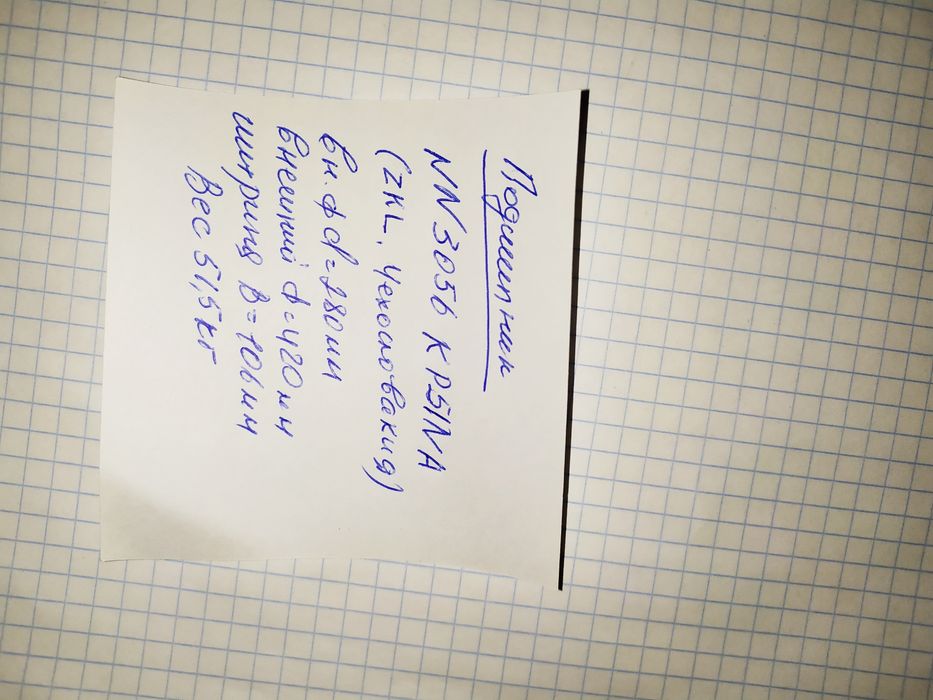 Подшипник
NN3056 K P51NA
(ZKL, Чехословакия)
вн. ф d=280мм
внешний ф=420мм
ширина B=106мм
Вес 51,5кг